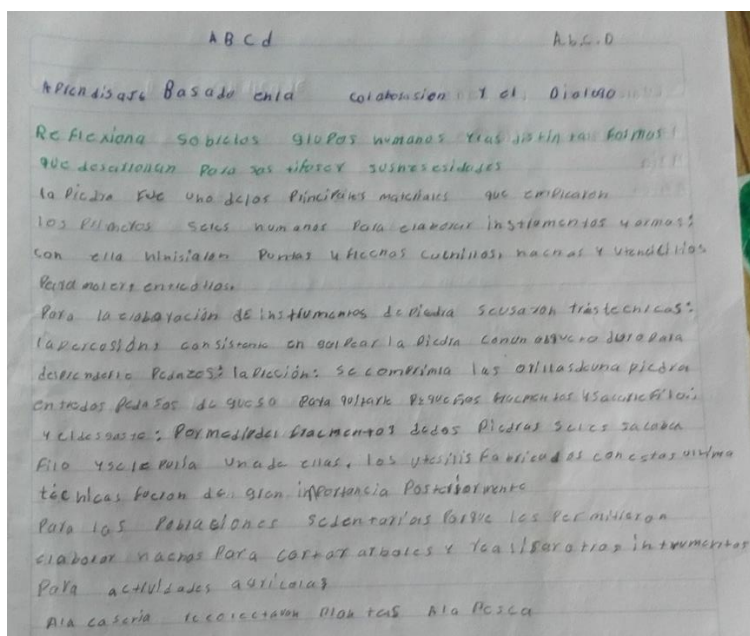 A B C d A b c . D
Aprendisaje Basado enla colaborasion y el Dialogo
Reflexiona sobrelos grupos humanos ylas distintas formas
que desarrollan para sastifaser susnesesidades
la Piedra Fue uno delos Principales materiales que emplearon
los Primeros seres humanos Para elaborar instrumentos y armas:
con ella hisieron Puntas y flechas cuchillos, hachas y utencilios
Para moler, entre ellos.
Para la elaboración de instrumentos de piedra seusaron trestecnicas:
lapercosión, consistente en golpear la piedra conun objeto duro para
desprenderle Pedazos: la Preción: se comprimia las orillas deuna piedra
entredos pedasos de gueso Para quitarle pequeños fragmentos ysacarlefilo;
y eldesgaste: Pormediode fragmentos dedos piedras seles sacaba
Filo yse le pulia unade ellas, los utesilis fabricados conestas
técnicas fueron de gran importancia Posteriormente
Para las Poblaciones sedentarias Porque les permitieron
elaborar hachas Para cortar arboles y realisar otros intrumentos
Para actividades agricolas
Ala caseria recolectavan Plantas Ala Pesca